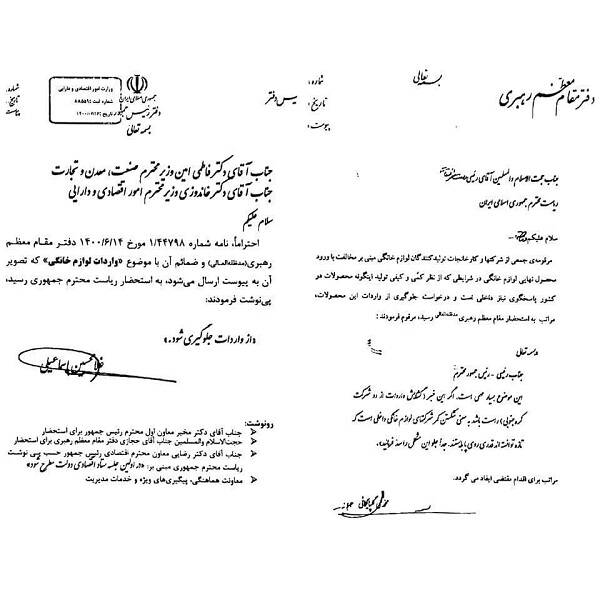 بسمه تعالی
دفتر مقام معظم رهبری
شماره:
تاریخ:
پیوست:
جناب حجت الاسلام والمسلمین آقای رئیسی
ریاست محترم جمهوری اسلامی ایران
سلام علیکم
مرقومه‌ی جمعی از شرکتها و کارخانجات تولیدکنندگان لوازم خانگی مبنی بر مخالفت با ورود
محصول نهایی لوازم خانگی در شرایطی که از نظر کمّی و کیفی تولید اینگونه محصولات در
کشور پاسخگوی نیاز داخلی است و درخواست جلوگیری از واردات این محصولات،
مراتب به استحضار مقام معظم رهبری مدظله‌العالی رسید، مرقوم فرمودند:
بسمه تعالی
جناب رئیسی - رئیس جمهور محترم
این موضوع بسیار مهمی است. اگر این خبر (گشایش واردات از دو شرکت
کره جنوبی) راست باشد به معنی شکستن کمر شرکتهای لوازم خانگی داخلی است که
تازه توانسته‌اند قدری روی پا بایستند. جداً جلو این مشکل را سد فرمائید.
مراتب برای اقدام مقتضی ایفاد می گردد.
محمد محمدی گلپایگانی
شماره:
تاریخ:
پیوست:
جمهوری اسلامی ایران
رئیس دفتر
بسمه تعالی
وزارت امور اقتصادی و دارایی
شماره ثبت
تاریخ
جناب آقای دکتر فاطمی امین وزیر محترم صنعت، معدن و تجارت
جناب آقای دکتر خاندوزی وزیر محترم امور اقتصادی و دارایی
سلام علیکم
احتراماً، نامه شماره ۱/۴۴۷۹۸ مورخ ۱۴۰۰/۶/۱۴ دفتر مقام معظم
رهبری(مدظله‌العالی) و ضمائم آن با موضوع «واردات لوازم خانگی» که تصویر
آن به پیوست ارسال می‌شود، به استحضار ریاست محترم جمهوری رسید،
پی‌نوشت فرمودند:
«از واردات جلوگیری شود.»
غلامحسین اسماعیلی
رونوشت:
جناب آقای دکتر مخبر معاون اول محترم رئیس جمهور برای استحضار
حجت‌الاسلام والمسلمین جناب آقای حجازی دفتر مقام معظم رهبری برای استحضار
جناب آقای دکتر رضایی معاون محترم اقتصادی رئیس جمهور حسب پی نوشت
ریاست محترم جمهوری مبنی بر: «در اولین جلسه ستاد اقتصادی دولت مطرح شود»
معاونت هماهنگی، پیگیری‌های ویژه و خدمات مدیریت